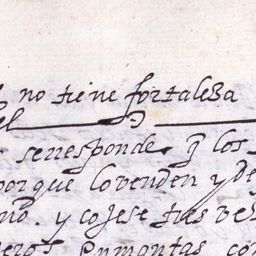 no tiene fortaleza
el
se rresponde q̃ los
porque lo venden y de
no. y cojese tres vez
en mantas co